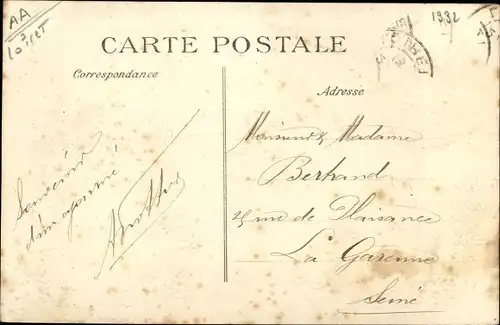 AA
Loiret
1932
CARTE POSTALE
Correspondance
Adresse
Souvenir
d'un
Monsieur & Madame
Bertrand
25 rue de Plaisance
La Garenne
Seine